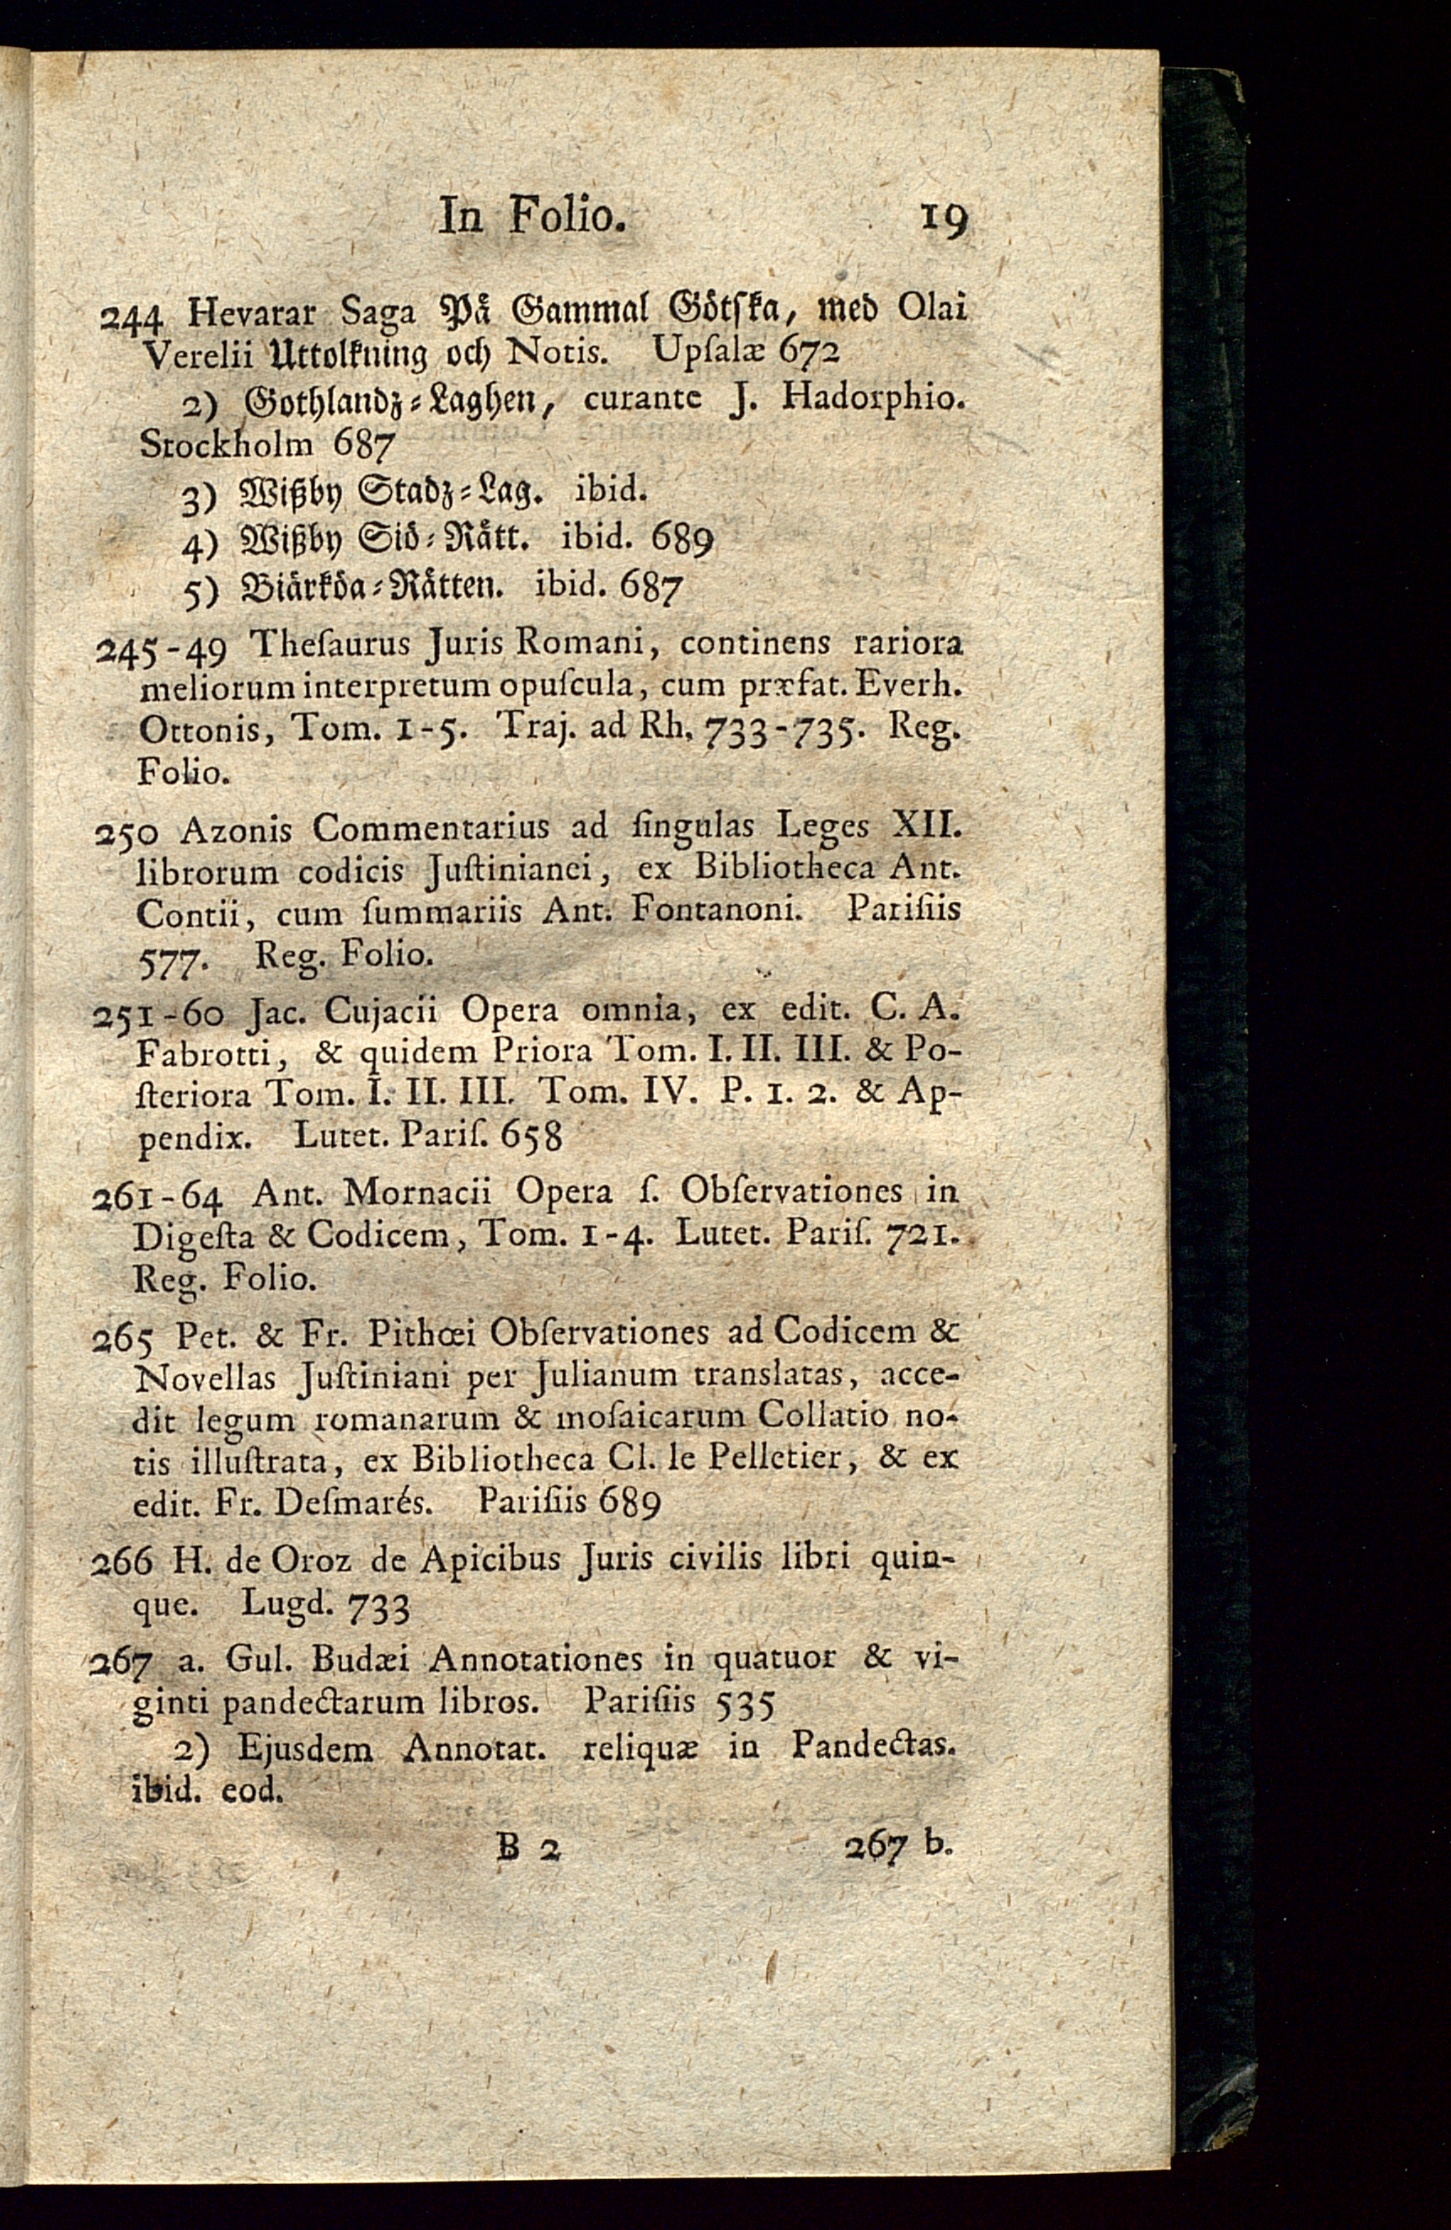 In Folio. 19
244 Hevarar Saga På Gammal Götſka, med Olai
Verelii Uttolkning och Notis. Upſalæ 672
2) Gothlandz-Laghen, curante J. Hadorphio.
Stockholm 687
3) Wißby Stadz-Lag. ibid.
4) Wißby Siö-Rätt. ibid. 689
5) Biärköa-Rätten. ibid. 687
245-49 Theſaurus Juris Romani, continens rariora
meliorum interpretum opuſcula, cum præfat. Everh.
Ottonis, Tom. 1-5. Traj. ad Rh. 733-735. Reg.
Folio.
250 Azonis Commentarius ad ſingulas Leges XII.
librorum codicis Juſtinianei, ex Bibliotheca Ant.
Contii, cum ſummariis Ant. Fontanoni. Pariſiis
577. Reg. Folio.
251-60 Jac. Cujacii Opera omnia, ex edit. C. A.
Fabrotti, & quidem Priora Tom. I. II. III. & Po-
ſteriora Tom. I. II. III. Tom. IV. P. 1. 2. & Ap-
pendix. Lutet. Pariſ. 658
261-64 Ant. Mornacii Opera ſ. Obſervationes in
Digeſta & Codicem, Tom. 1-4. Lutet. Pariſ. 721.
Reg. Folio.
265 Pet. & Fr. Pithœi Obſervationes ad Codicem &
Novellas Juſtiniani per Julianum translatas, acce-
dit legum romanarum & moſaicarum Collatio no-
tis illuſtrata, ex Bibliotheca Cl. le Pelletier, & ex
edit. Fr. Deſmarés. Pariſiis 689
266 H. de Oroz de Apicibus Juris civilis libri quin-
que. Lugd. 733
267 a. Gul. Budæi Annotationes in quatuor & vi-
ginti pandectarum libros. Pariſiis 535
2) Ejusdem Annotat. reliquæ in Pandectas.
ibid. eod.
B 2 267 b.